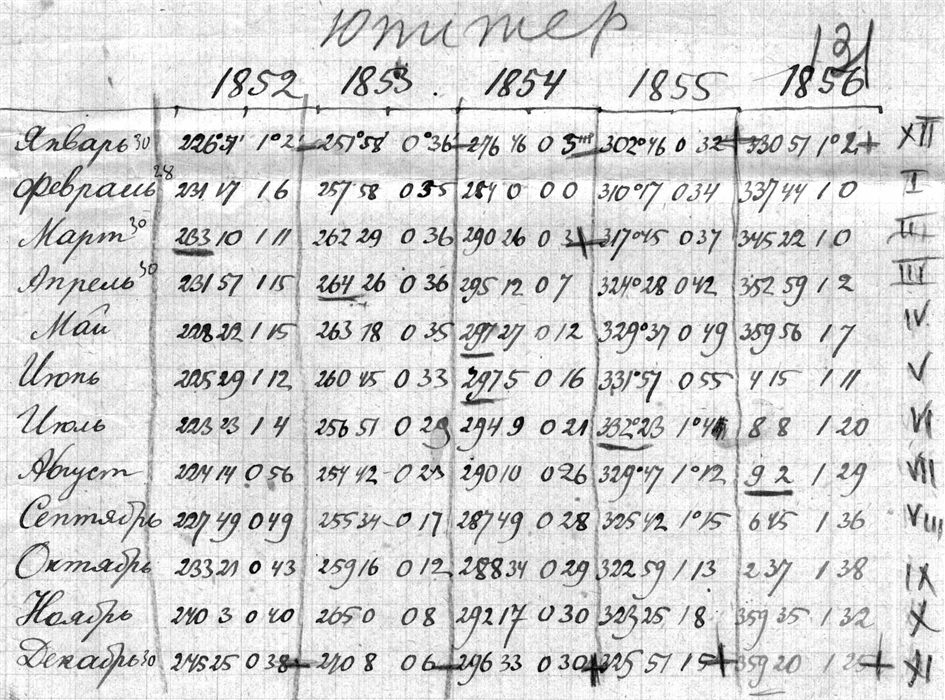 Юпитер
131
1852 1853. 1854 1855 1856
Январь 30 226°51' 1°2 251°58' 0°36 276 46 0 5 302°46 0 32 330 51 1°2+ XII
Февраль 28 231 17 1 6 257 58 0 35 284 0 0 0 310°17 0 34 337 44 1 0 I
Март 30 233 10 1 11 262 29 0 36 290 26 0 3+ 317°45 0 37 345 22 1 0 II
Апрель 30 231 57 1 15 264 26 0 36 295 12 0 7 324°28 0 42 352 59 1 2 III
Май 228 22 1 15 263 18 0 35 297 27 0 12 329°37 0 49 359 56 1 7 IV.
Июнь 225 29 1 12 260 45 0 33 297 5 0 16 331°57 0 55 4 15 1 11 V
Июль 223 23 1 4 256 51 0 29 294 9 0 21 332°23 8 8 1 20 VI
Август 224 14 0 56 254 42 0 23 290 10 0 26 329°47 1°12 9 2 1 29 VII
Сентябрь 227 49 0 49 255 34 0 17 287 49 0 28 325 42 1°15 6 45 1 36 VIII
Октябрь 233 21 0 43 259 16 0 12 288 34 0 29 322 59 1 13 2 37 1 38 IX
Ноябрь 240 3 0 40 265 0 0 8 292 17 0 30 323 25 1 8 359 35 1 32 X
Декабрь 30 245 25 0 38+ 270 8 0 6 296 33 0 30+ 325 51 1 5+ 359 20 1 25+ XI